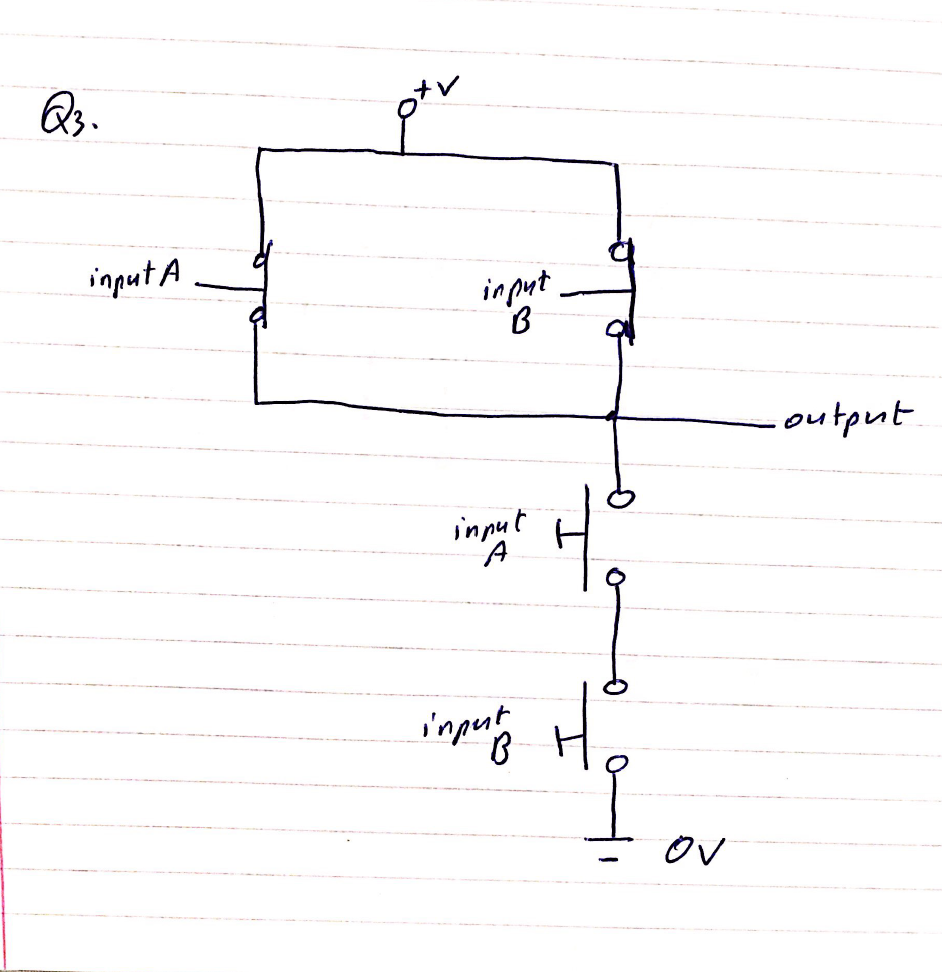 Q3.
+V
input A
input
B
output
input
A
input
B
0V